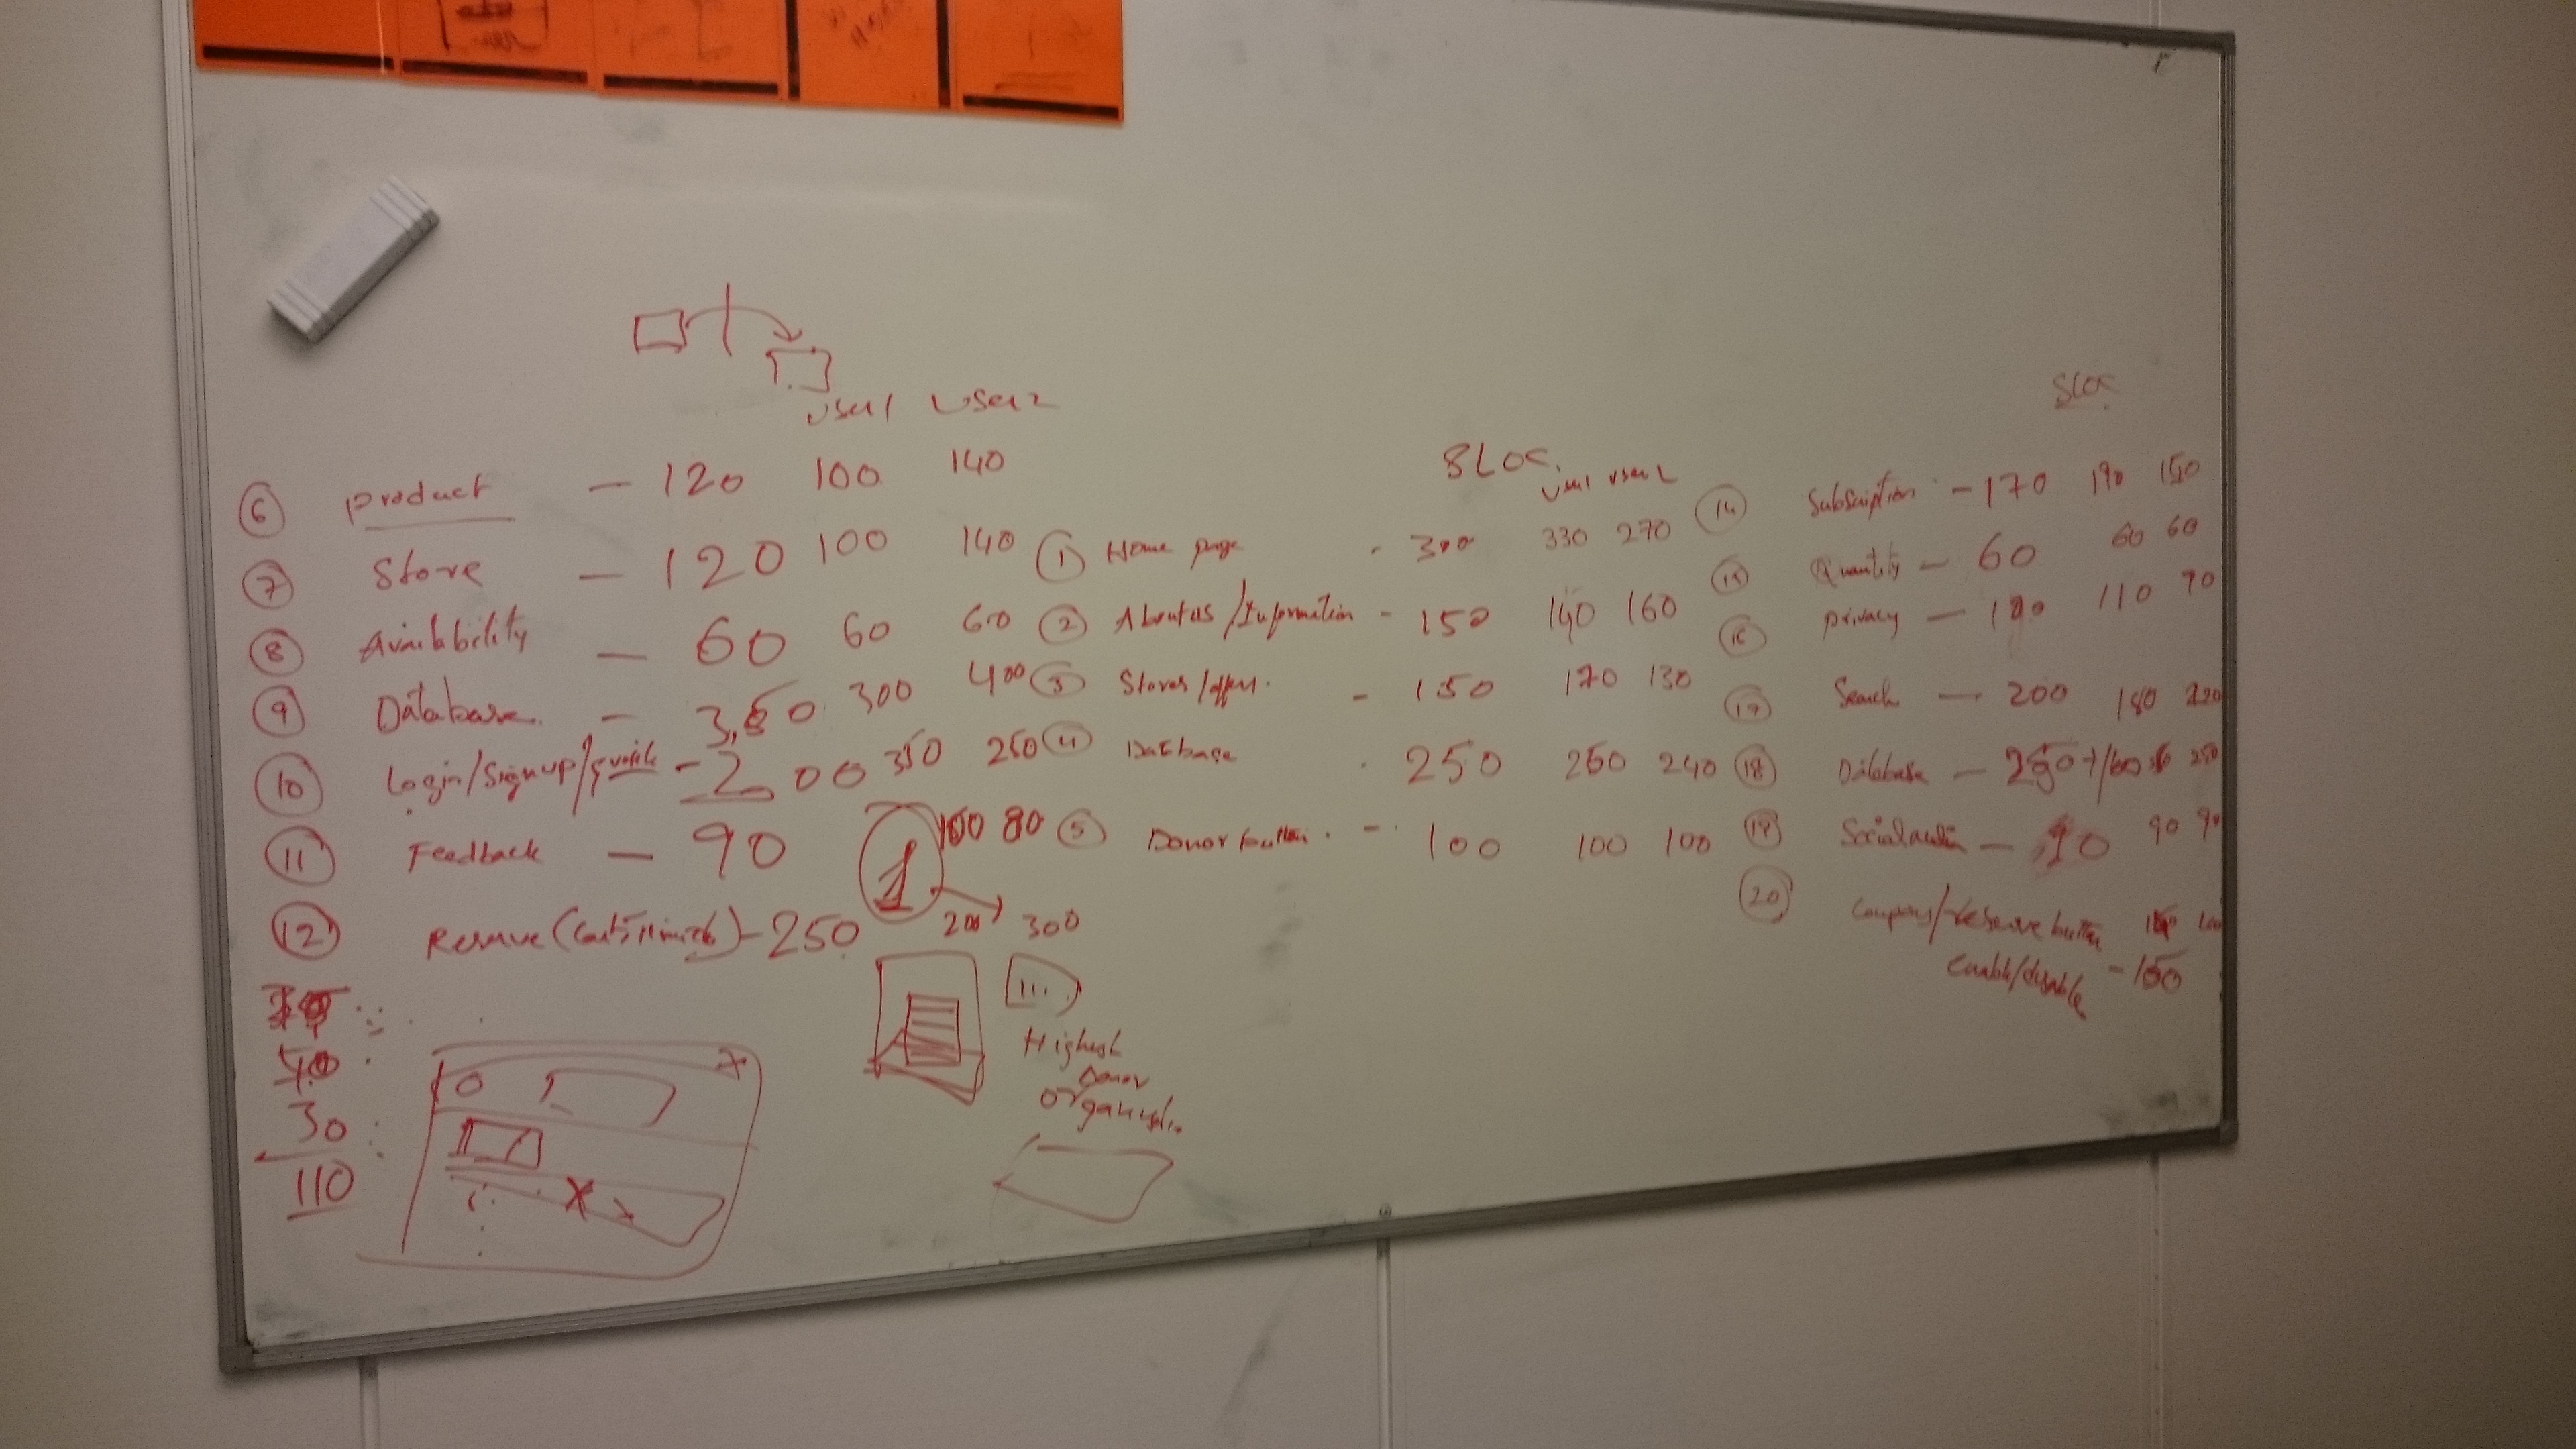 User1 User2
6 Product — 120 100 140
7 Store — 120 100 140
8 Availability — 60 60 60
9 Database — 300 400
10 Login/Signup/ — 200 350 250
11 Feedback — 90 100 80
12 Reserve ( ) — 250 200 300
40
30
110
1
Highest
Donor
SLOC
User1 User2
1 Home page - 300 330 270
2 About us/Information - 150 140 160
3 Stores/offers - 150 170 130
4 Database 250 260 240
5 Donor button - 100 100 100
SLOC
14 Subscription - 170 190 150
15 Quantity - 60 60 60
16 Privacy — 110 70
17 Search — 200 180 220
18 Database — 250
19 Social media — 90 90 90
20 Coupons/reserve button
enable/disable - 150